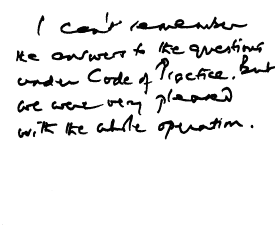 I can't remember
the answers to the questions
under Code of Practice. But
we were very pleased
with the whole operation.